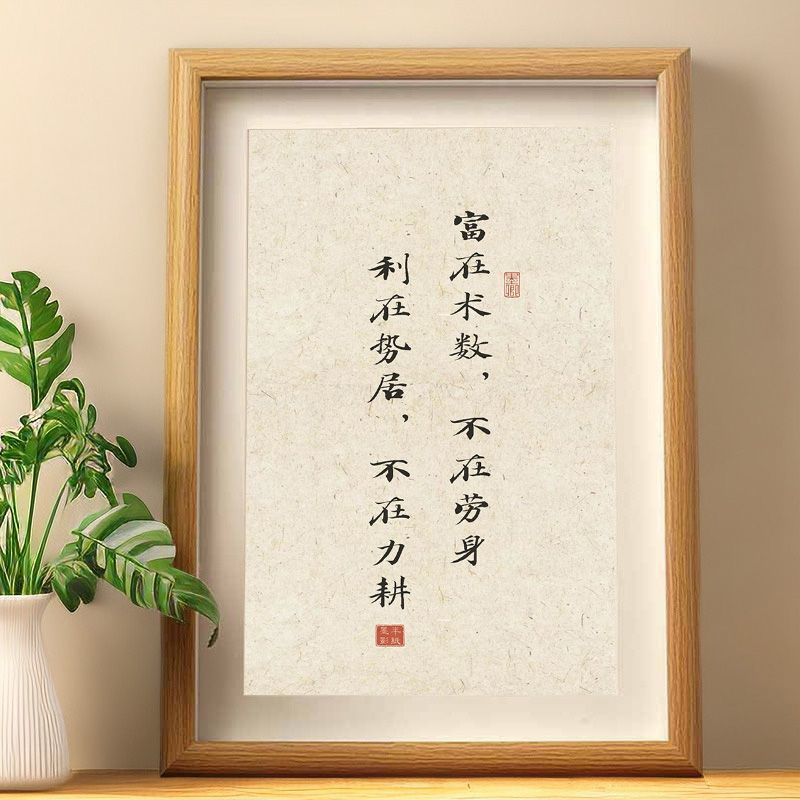 富在术数，不在劳身
利在势居，不在力耕
半纸
墨彩